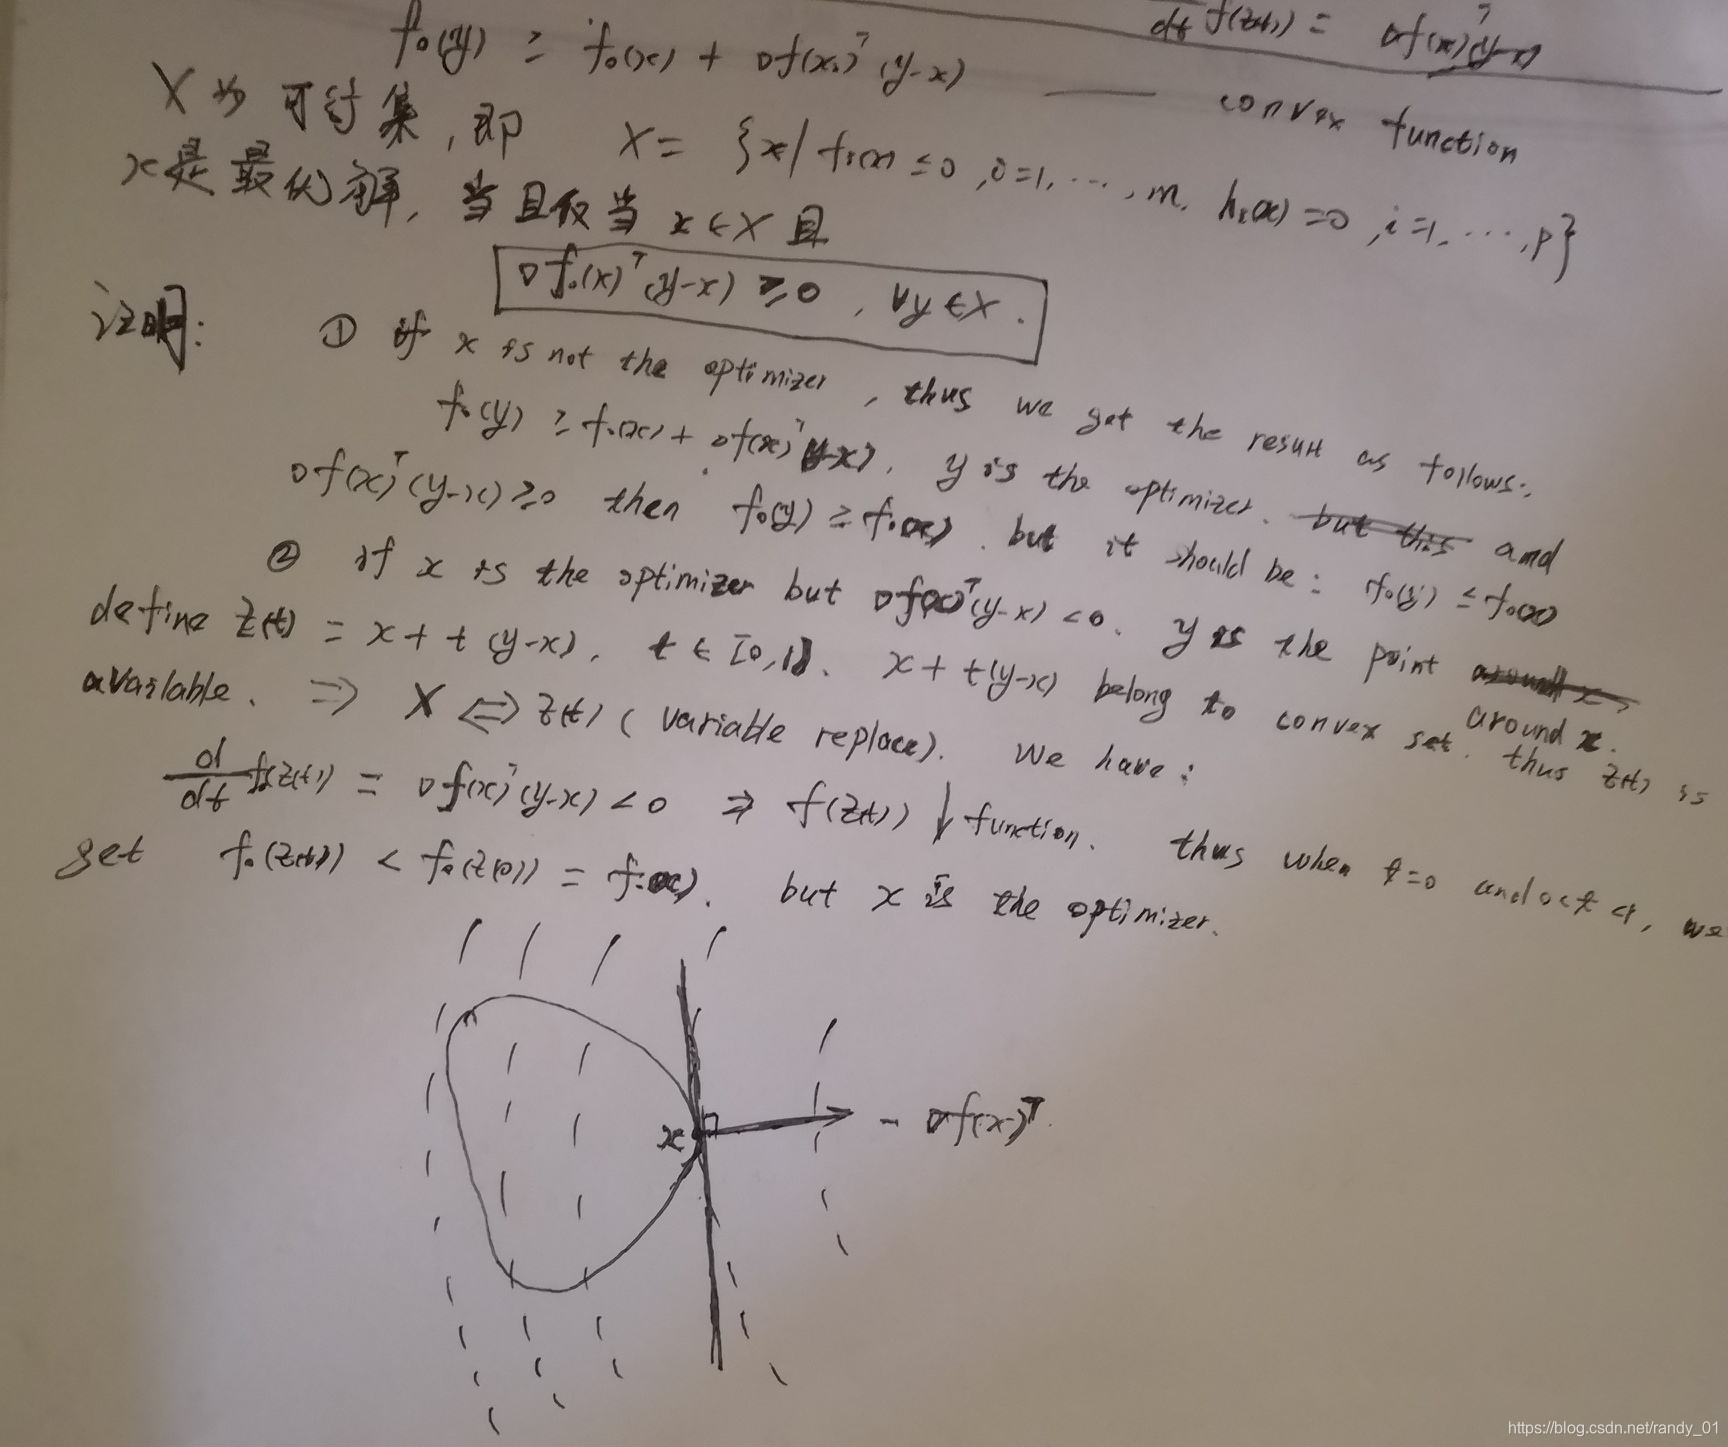 d/dt f(z(t)) = ∇f(x)ᵀ(y-x)
f₀(y) ≥ f₀(x) + ∇f(x)ᵀ(y-x) —— convex function
X 为可行集,即 X = {x | fᵢ(x) ≤ 0, i=1,…,m, hᵢ(x)=0, i=1,…,p}
x是最优解,当且仅当 x∈X 且
∇f₀(x)ᵀ(y-x) ≥0, ∀y∈X.
证明: ① if x is not the optimizer, thus we get the result as follows:
f₀(y) ≥ f₀(x) + ∇f(x)ᵀ(y-x), y is the optimizer. but this and
∇f(x)ᵀ(y-x)≥0 then f₀(y) ≥ f₀(x). but it should be: f₀(y) ≤ f₀(x)
② if x is the optimizer but ∇f(x)ᵀ(y-x) <0. y is the point around x
around x.
define z(t) = x+t(y-x), t∈[0,1]. x+t(y-x) belong to convex set. thus z(t) is
available. ⇒ X ⇔ z(t) (variable replace). We have:
d/dt f(z(t)) = ∇f(x)ᵀ(y-x) <0 ⇒ f(z(t)) ↓ function. thus when t=0 and 0<t<1, we
get f₀(z(t)) < f₀(z(0)) = f₀(x). but x is the optimizer.
x
- ∇f(x)ᵀ
https://blog.csdn.net/randy_01